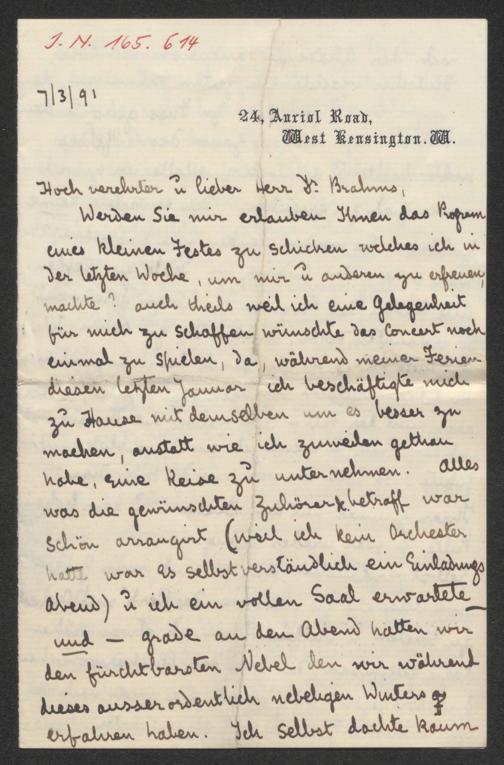 J. N. 165. 614
7/3/91
24, Auriol Road,
West Kensington. W.
Hoch verehrter u lieber Herr Dr. Brahms,
Werden Sie mir erlauben Ihnen das Program
eines kleinen Festes zu schicken welches ich in
der letzten Woche, um mir u anderen zu erfreuen,
machte? auch theils weil ich eine Gelegenheit
für mich zu schaffen wünschte das Concert noch
einmal zu spielen, da, während meiner Ferien
diesen letzten Januar ich beschäftigte mich
zu Hause mit demselben um es besser zu
machen, anstatt wie ich zuweilen gethan
habe, eine Reise zu unternehmen. Alles
was die gewünschten Zuhörer betraff war
schön arrangirt (weil ich kein Orchester
hatte war es selbstverständlich ein Einladungs
Abend) u ich ein vollen Saal erwartete —
und — grade an den Abend hatten wir
den fürchtbarsten Nebel den wir während
dieses ausserordentlich nebeligen Winters
erfahren haben. Ich selbst dachte kaum